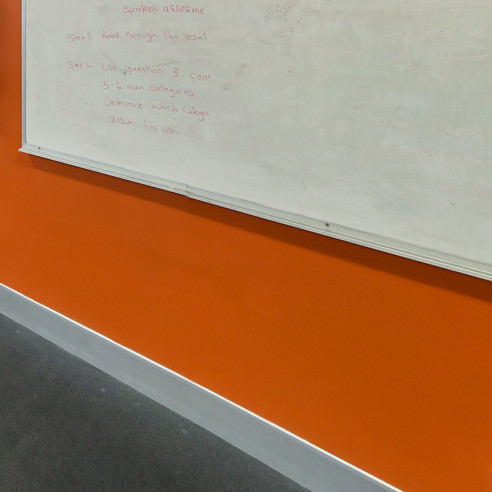 Spoken assesme
Step 5 Read through the
Step 6 Use question 3,
5-6 main categories
Determine which categor
answer fits into